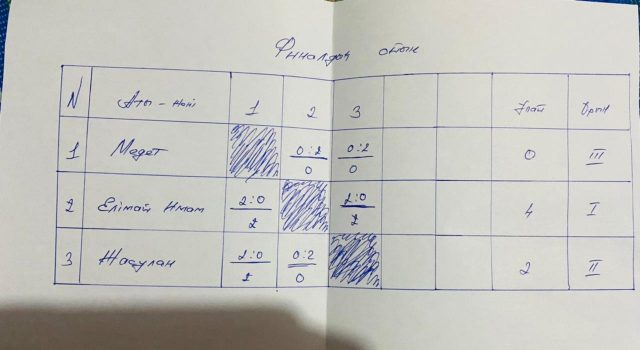 Финалдық ойын
N Аты-жөні 1 2 3 Ұпай Орын
1 Медет 0:2 0:2 0 III
0 0
2 Елімай Имам 2:0 2:0 4 I
2 2
3 Жасулан 2:0 0:2 2 II
2 0